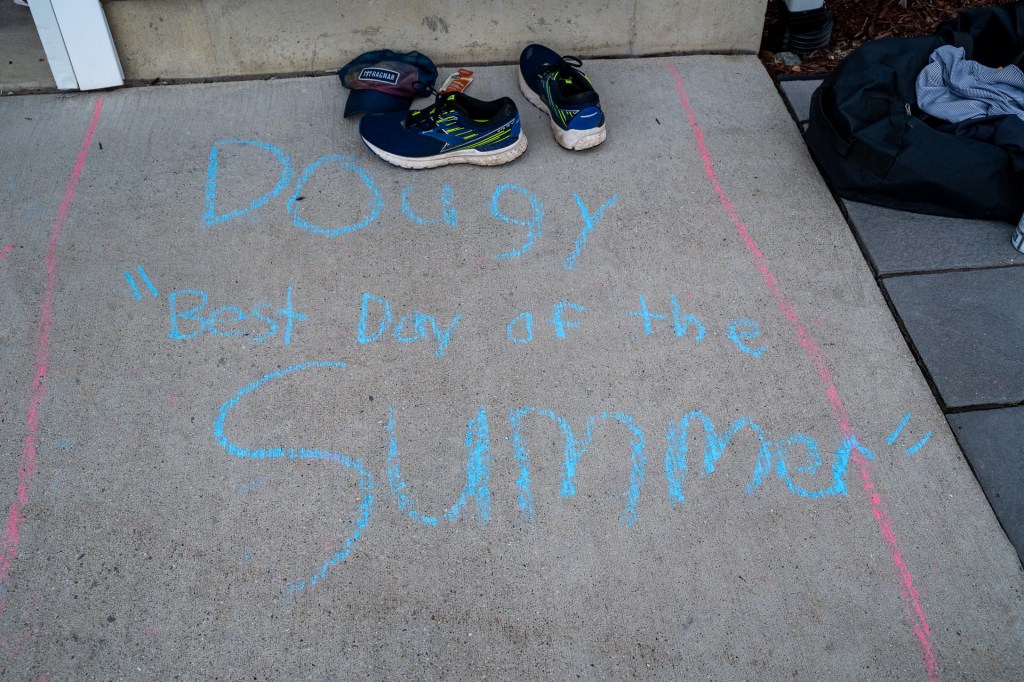 RAGNAR
Dougy
"Best Day of the
Summer"